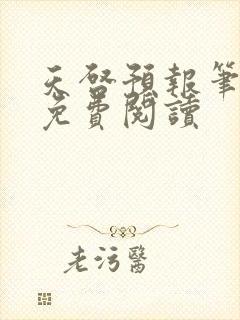 天啓預報筆
免費閱讀
老污醫